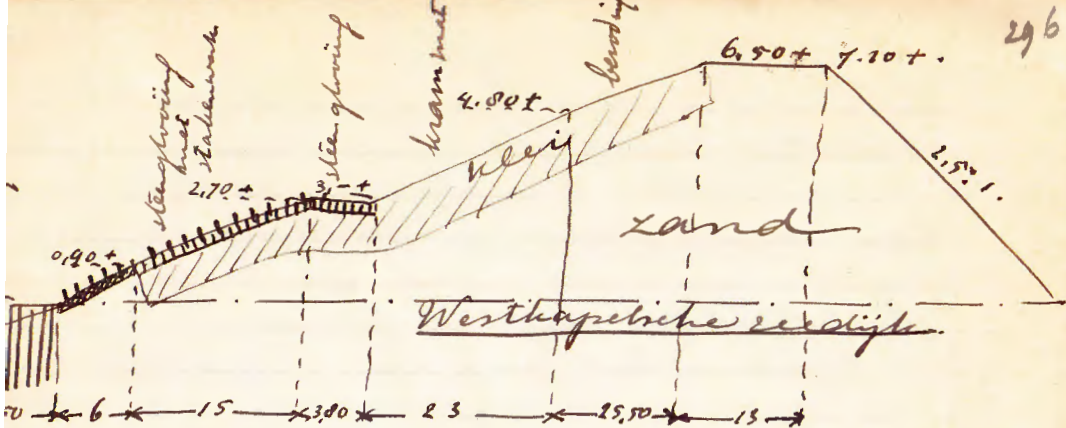 296
steenglooiing
met
staketwerk
steenglooiing
krammat
6,50+ 7.20+.
4.80±
2,70± 3,-+
klei
0,90+
2,5:1.
zand
Westkapelsche zeedijk.
50 6 15 3,80 23 25,50 13